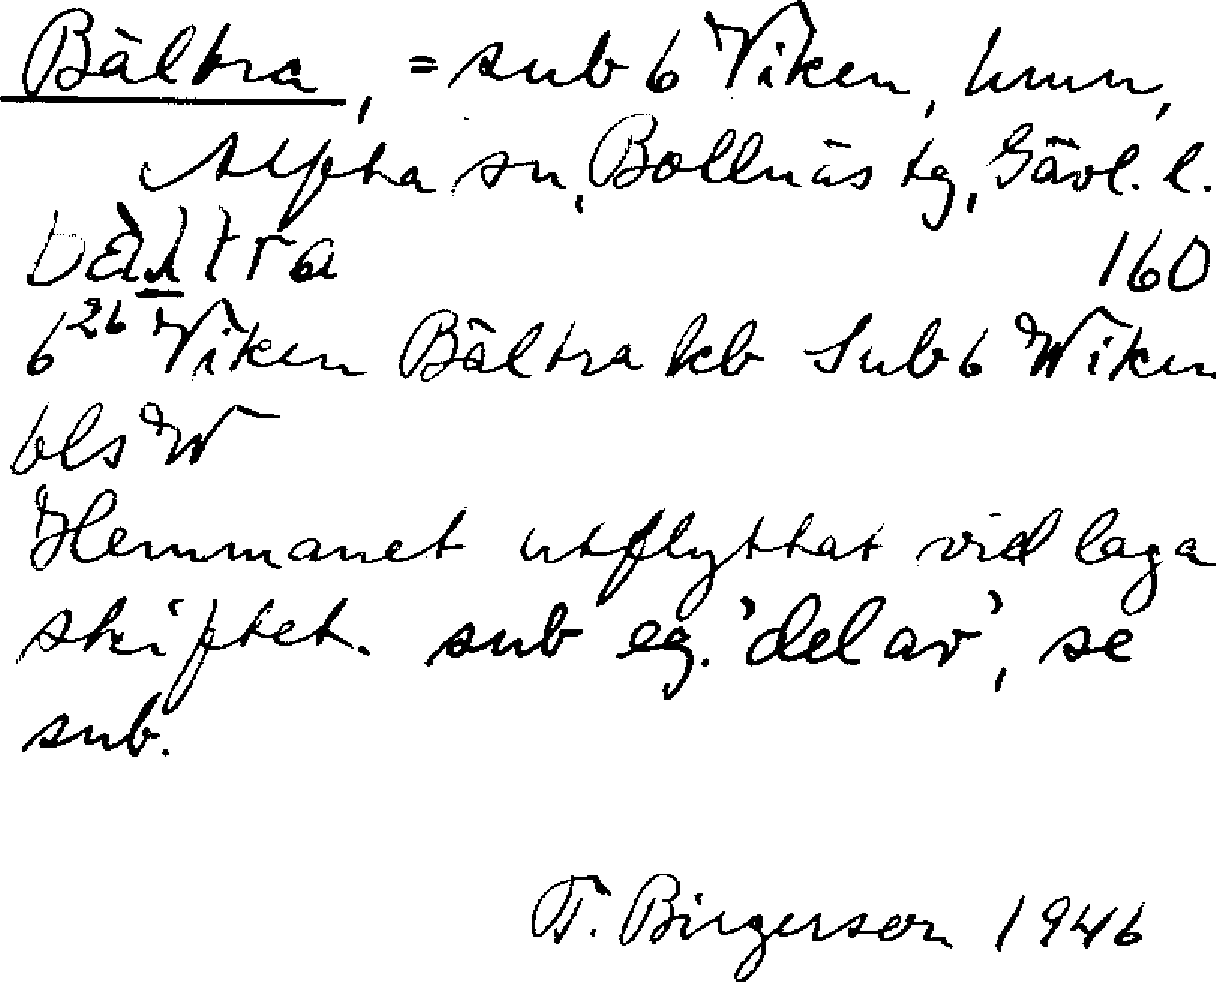 Bältra, = sub 6 Viken, hmn,
Alfta sn, Bollnäs tg, Gävl. l.
bàltra 160
6²⁶ Viken Bältra kb Sub 6 Wiken
bls W
Hemmanet utflyttat vid laga
skiftet. sub eg. 'del av', se
sub.
F. Birgerson 1946